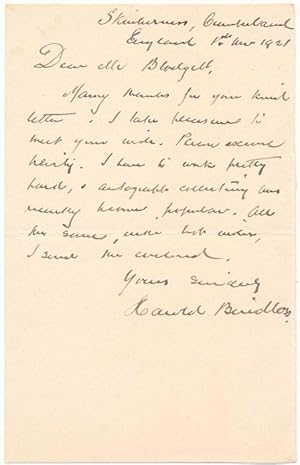 Skinburness, Cumberland
England 1921
Dear Mr Blodgett,
Many thanks for your kind
letter. I take pleasure to
meet your wish. Please excuse
brevity. I have to work pretty
hard, & autograph collecting has
recently become popular. All
the same, with best wishes,
I send the enclosed.
Yours sincerely
Harold Bindloss.